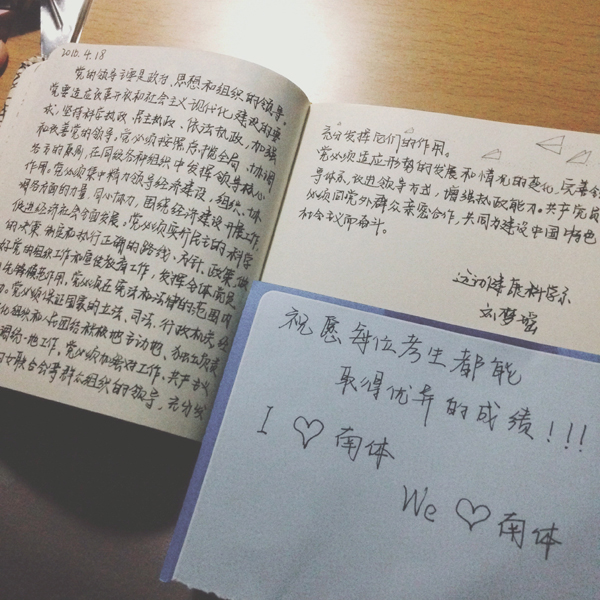 2010.4.18
党的领导主要是政治、思想和组织的领导。
党要适应改革开放和社会主义现代化建设的要
求，坚持科学执政、民主执政、依法执政，加强
和改善党的领导。党必须按照总揽全局、协调
各方的原则，在同级各种组织中发挥领导核心
作用。党必须集中精力领导经济建设，组织、协
调各方面的力量，同心协力，围绕经济建设开展工作，
促进经济社会全面发展。党必须实行民主的科学
的决策，制定和执行正确的路线、方针、政策，做
好党的组织工作和宣传教育工作，发挥全体党员
的先锋模范作用。党必须在宪法和法律的范围内
活动。党必须保证国家的立法、司法、行政机关，经
文化组织和人民团体积极地主动地、独立负责
协调一致地工作。党必须加强对工会、共产主义
妇女联合会等群众组织的领导，充分发
充分发挥他们的作用。
党必须适应形势的发展和情况的变化，完善领
导体系，改进领导方式，增强执政能力。共产党员
必须同党外群众亲密合作，共同为建设中国特色
社会主义而奋斗。
运动健康科学系
刘梦瑶
祝愿每位考生都能
取得优异的成绩！！！
I ♡ 南体
We ♡ 南体